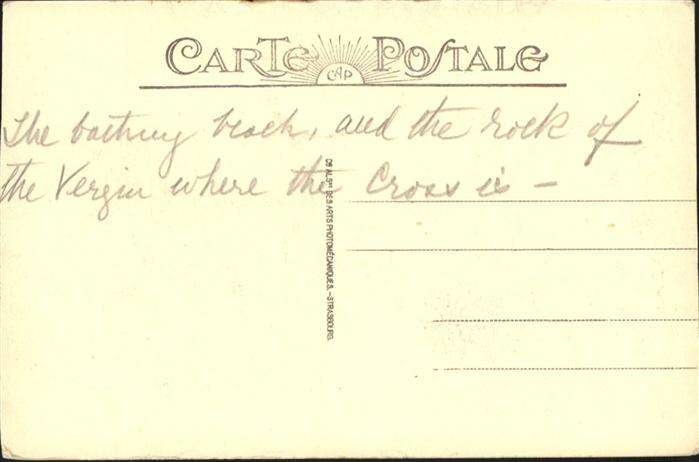 CARTE POSTALE
CAP
The bathing beach, and the rock of
the Vergin where the Cross is –
DS ALSne DES ARTS PHOTOMÉCANIQUES. – STRASBOURG.